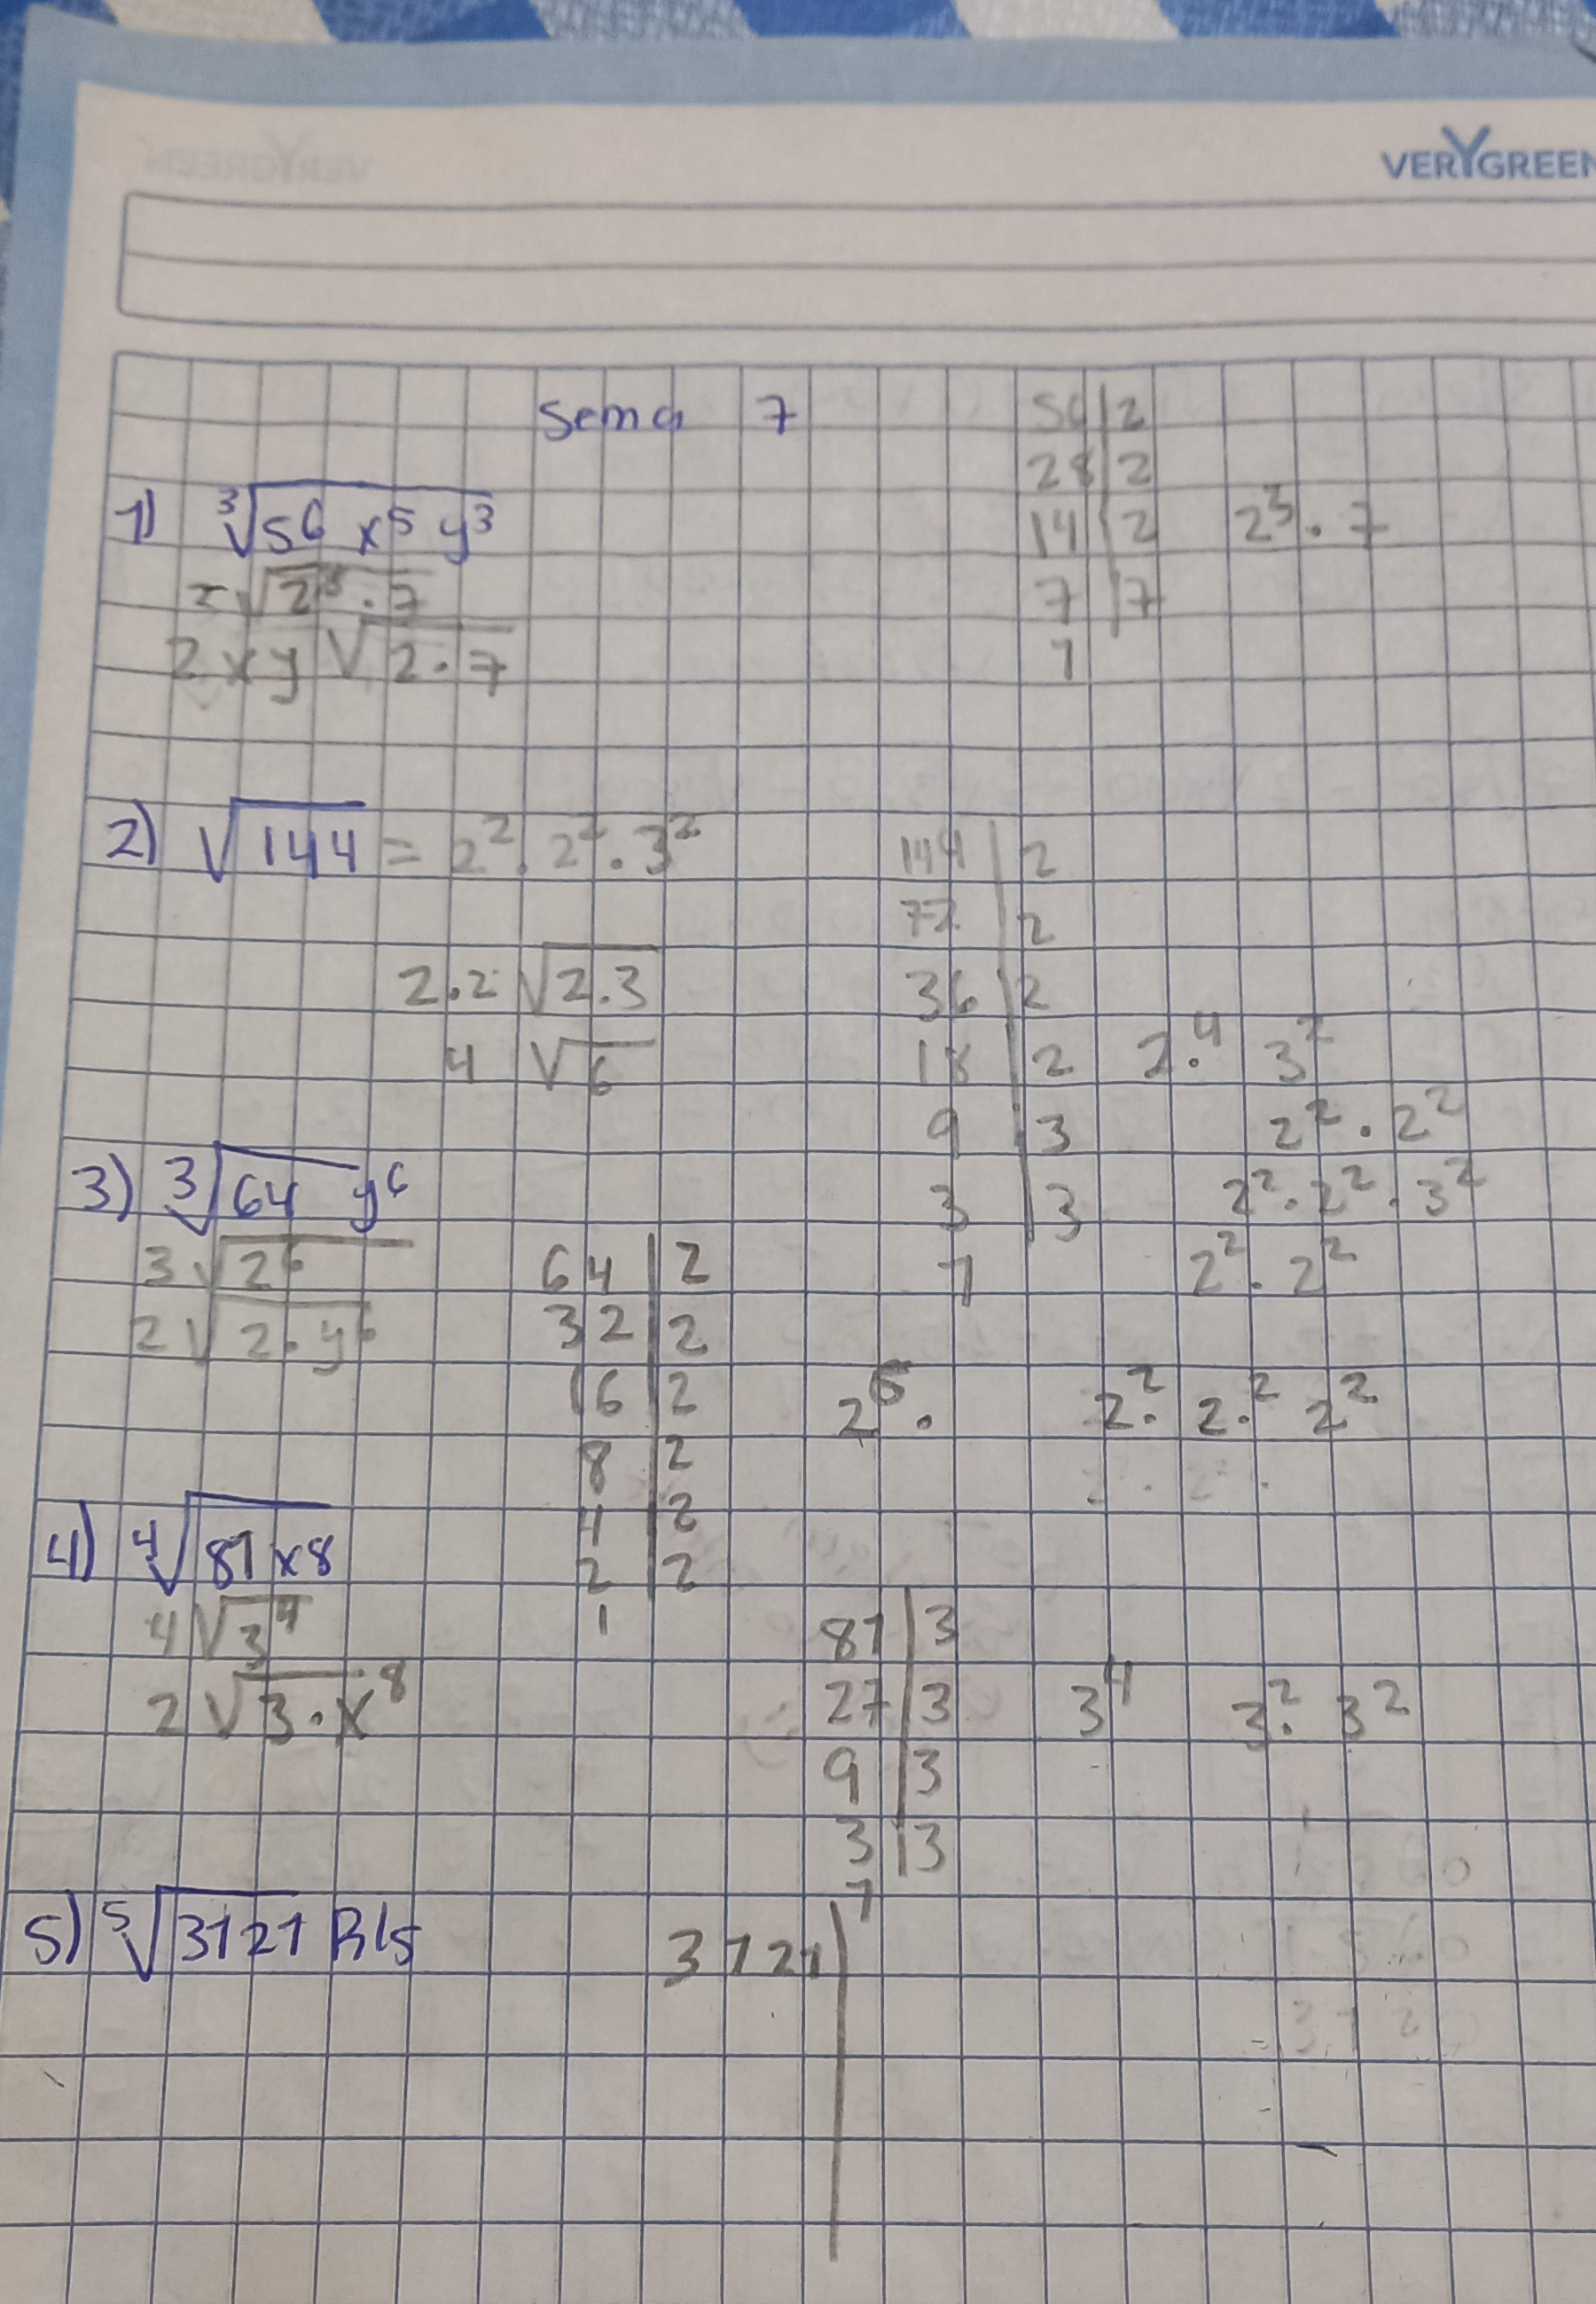 VERYGREEN
Sema 7
1) ³√56 x⁵ y³
= √2³ . 7
2xy √2 . 7
56 | 2
28 | 2
14 | 2
7 | 7
1
2³ . 7
2) √144 = 2² . 2² . 3²
2.2 √2.3
4 √6
144 | 2
72 | 2
36 | 2
18 | 2
9 | 3
3 | 3
1
2.⁴ 3²
2² . 2²
2² . 2² . 3²
2² . 2²
3) ³√64 y⁶
3√2⁶
2√2.y⁶
64 | 2
32 | 2
16 | 2
8 | 2
4 | 2
2 | 2
1
2⁶ .
2.² 2.² 2²
4) ⁴√81 x8
4√3⁴
2√3.x⁸
81 | 3
27 | 3
9 | 3
3 | 3
1
3⁴
3.² 3²
5) ⁵√3121
3121 |